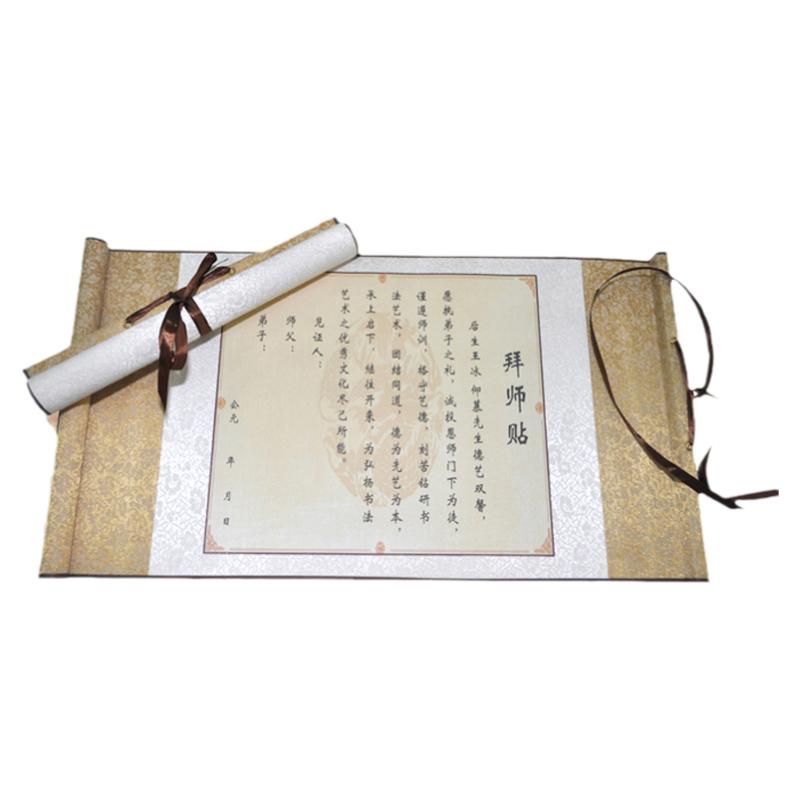 拜师贴
后生王冰仰慕先生德艺双馨，
愿执弟子之礼，诚投恩师门下为徒，
谨遵师训，恪守艺德，刻苦钻研书
法艺术，团结同道，德为先艺为本，
承上启下，继往开来，为弘扬书法
艺术之优秀文化尽己所能。
见证人：
师父：
弟子：
公元 年 月 日